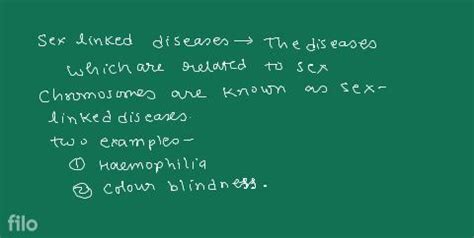 Sex linked diseases → The diseases
which are related to sex
Chromosomes are known as sex-
linked diseases.
two examples-
① Haemophilia
② Colour blindness.
filo